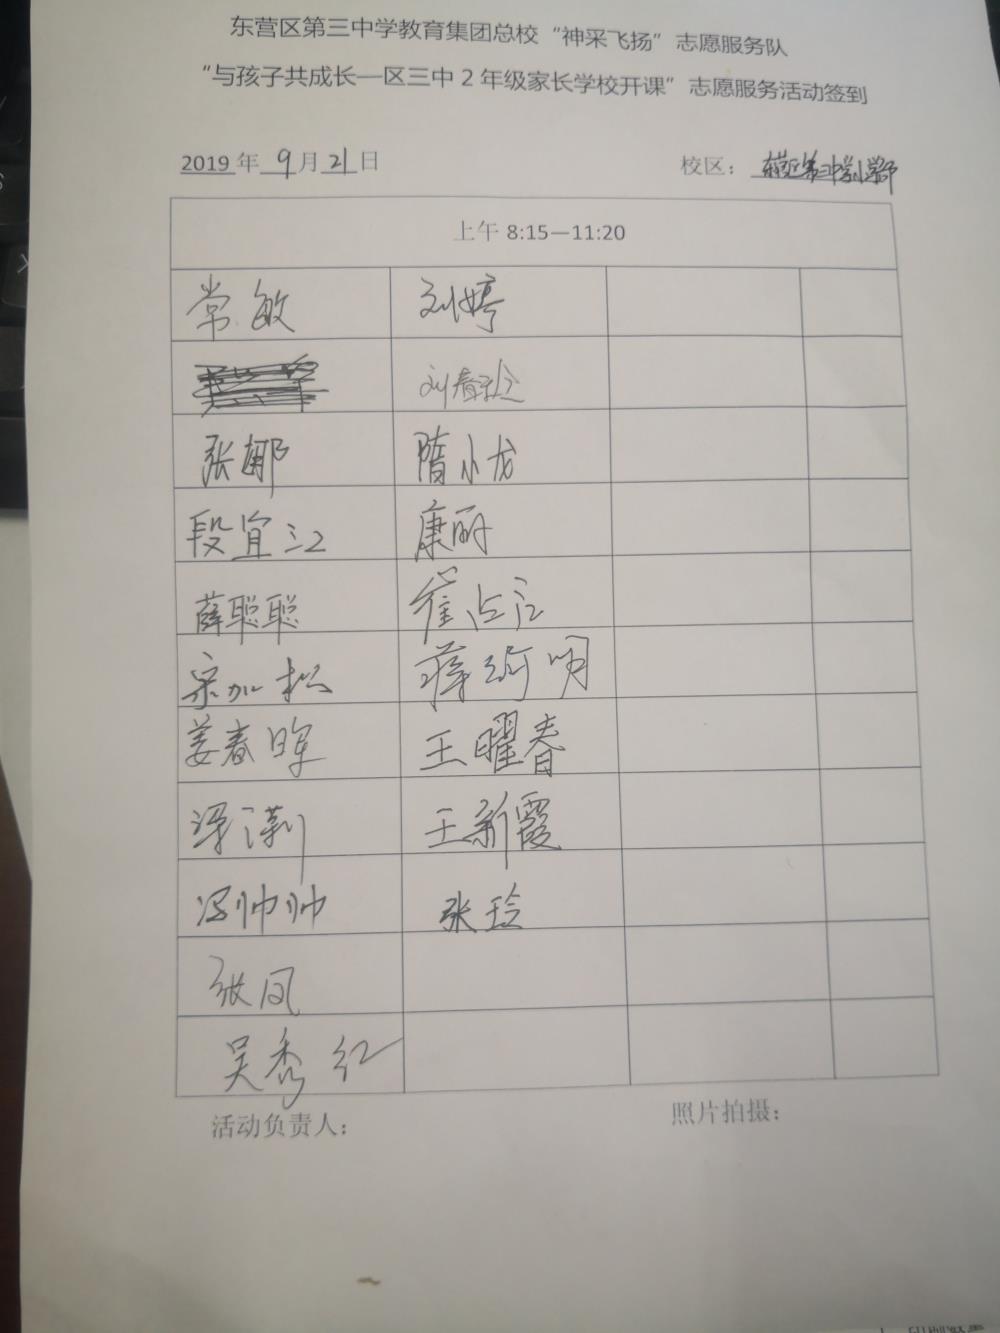 东营区第三中学教育集团总校“神采飞扬”志愿服务队
“与孩子共成长—区三中2年级家长学校开课”志愿服务活动签到
2019年 9月21日 校区：东营区第三中学小学部
上午 8:15—11:20
常敏 刘婷
刘春玲
张娜 隋小龙
段宜江 康丽
薛聪聪 崔占江
宗加松 薛 明
姜春晖 王曜春
王新霞
冯帅帅 张玲
张凤
吴秀红
活动负责人： 照片拍摄：